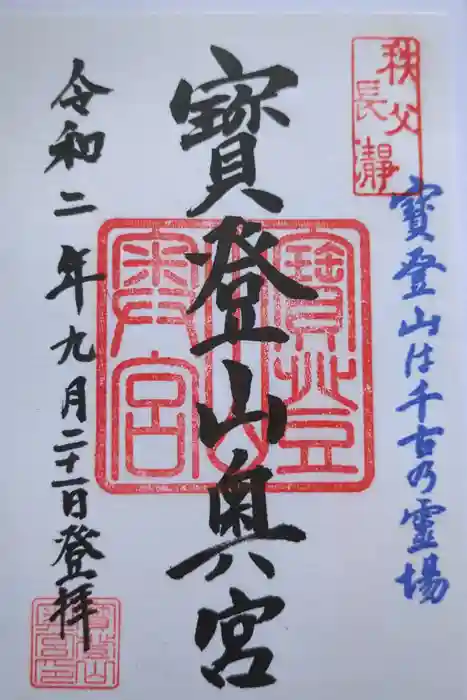 秩父
長瀞
寶登山は千古の霊場
寶登山奥宮
寶登山
奥宮
令和二年九月二十一日登拝